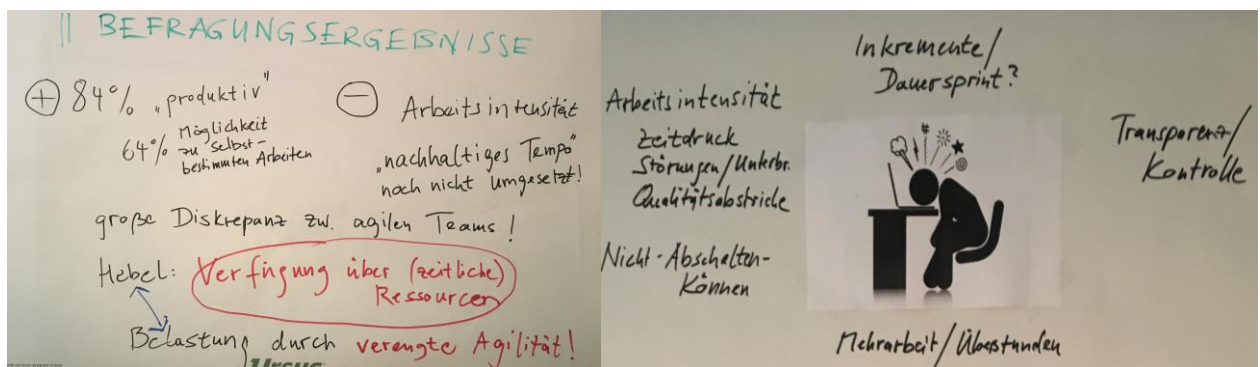 || BEFRAGUNGSERGEBNISSE
+ 84% „produktiv"
64% Möglichkeit
zu selbst-
bestimmten Arbeiten
− Arbeitsintensität
„nachhaltiges Tempo"
noch nicht umgesetzt!
große Diskrepanz zw. agilen Teams!
Hebel: Verfügung über (zeitliche)
Ressourcen
Belastung durch verengte Agilität!
Ursus
Inkremente/
Dauersprint?
Arbeitsintensität
Zeitdruck
Störungen/Unterbr.
Qualitätsabstriche
Nicht-Abschalten-
Können
Transparenz/
Kontrolle
#
Mehrarbeit/Überstunden